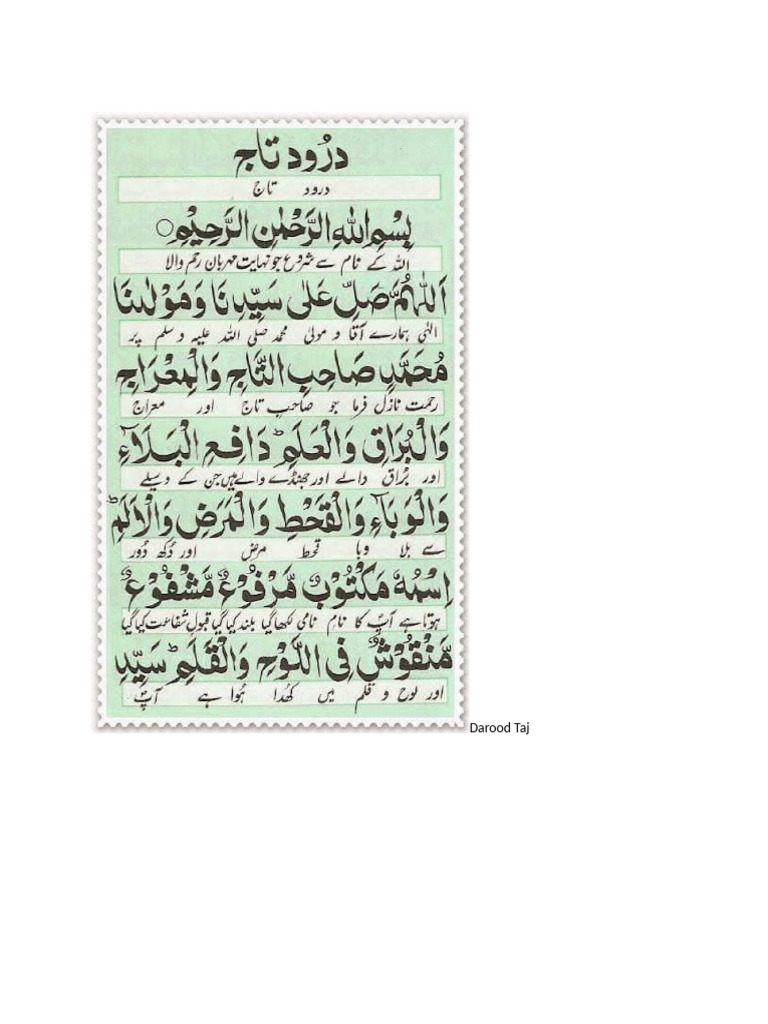 درود تاج
درود تاج
بِسْمِ اللهِ الرَّحْمٰنِ الرَّحِيْمِ
اللہ کے نام سے شروع جو نہایت مہربان رحم والا
اَللّٰهُمَّ صَلِّ عَلٰى سَيِّدِنَا وَمَوْلٰىنَا
الٰہی ہمارے آقا و مولیٰ محمد صلی اللہ علیہ وسلم پر
مُحَمَّدٍ صَاحِبِ التَّاجِ وَالْمِعْرَاجِ
رحمت نازل فرما جو صاحبِ تاج اور معراج
وَالْبُرَاقِ وَالْعَلَمِ ؕ دَافِعِ الْبَلَآءِ
اور بُراق والے اور جھنڈے والے ہیں جن کے وسیلے
وَالْوَبَآءِ وَالْقَحْطِ وَالْمَرَضِ وَالْاَلَمِ ؕ
سے بلا وبا قحط مرض اور دُکھ دُور
اِسْمُهٗ مَكْتُوْبٌ مَّرْفُوْعٌ مَّشْفُوْعٌ
ہوتا ہے آپؐ کا نام نامی لکھا گیا بلند کیا گیا قبول شفاعت کیا گیا
مَّنْقُوْشٌ فِى اللَّوْحِ وَالْقَلَمِ ؕ سَيِّدِ
اور لوح و قلم میں کھُدا ہُوا ہے آپؐ
Darood Taj